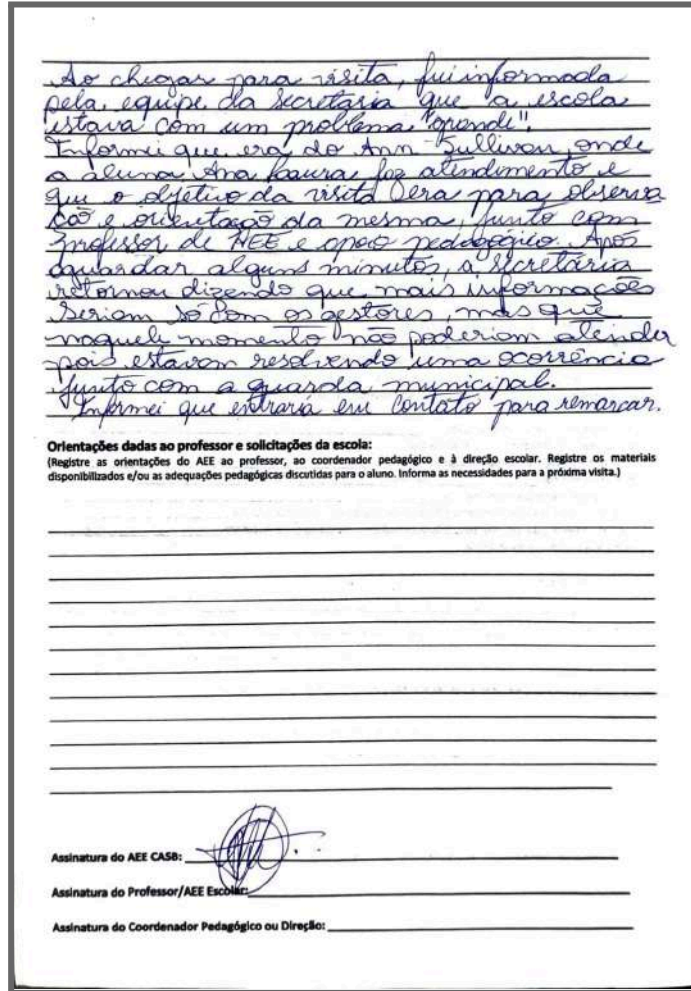 Ao chegar para visita, fui informada
pela equipe da secretaria que a escola
estava com um problema "grande".
Informei que era do Ann Sullivan, onde
a aluna Ana Laura faz atendimento e
que o objetivo da visita era para observa
ção e orientação da mesma, junto com
professor de AEE e apoio pedagógico. Após
aguardar alguns minutos, a secretária
retornou dizendo que mais informações
seriam só com os gestores, mas que
naquele momento não poderiam atender
pois estavam resolvendo uma ocorrência
junto com a guarda municipal.
Informei que entraria em contato para remarcar.
Orientações dadas ao professor e solicitações da escola:
(Registre as orientações do AEE ao professor, ao coordenador pedagógico e à direção escolar. Registre os materiais
disponibilizados e/ou as adequações pedagógicas discutidas para o aluno. Informa as necessidades para a próxima visita.)
Assinatura do AEE CASB:
Assinatura do Professor/AEE Escolar:
Assinatura do Coordenador Pedagógico ou Direção: